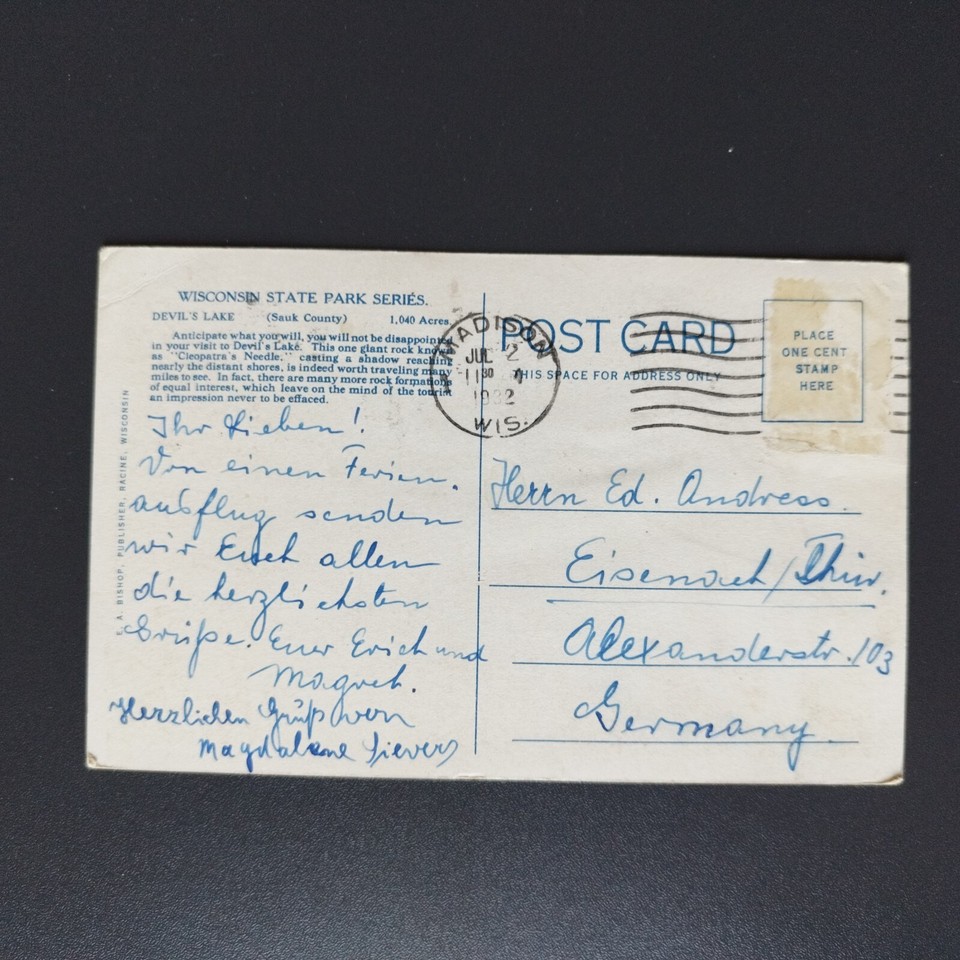 WISCONSIN STATE PARK SERIES.
DEVIL'S LAKE (Sauk County) 1,040 Acres
Anticipate what you will, you will not be disappoint
in your visit to Devil's Lake. This one giant rock know
as "Cleopatra's Needle," casting a shadow reaching
nearly the distant shores, is indeed worth traveling many
miles to see. In fact, there are many more rock formati
of equal interest, which leave on the mind of the tourist
an impression never to be effaced.
Ihr Lieben!
Von einen Ferien.
ausflug senden
wir Euch allen
die herzlichsten
Grüße. Euer Erich und
Magret.
Herzlichen Gruß von
Magdalene Sievers
A. BISHOP, PUBLISHER, RACINE, WISCONSIN
MADISON
JUL 2
11 30 A
1932
WIS.
POST CARD
THIS SPACE FOR ADDRESS ONLY
PLACE
ONE CENT
STAMP
HERE
Herrn Ed. Andress.
Eisenach/Thür.
Alexanderstr. 103
Germany.